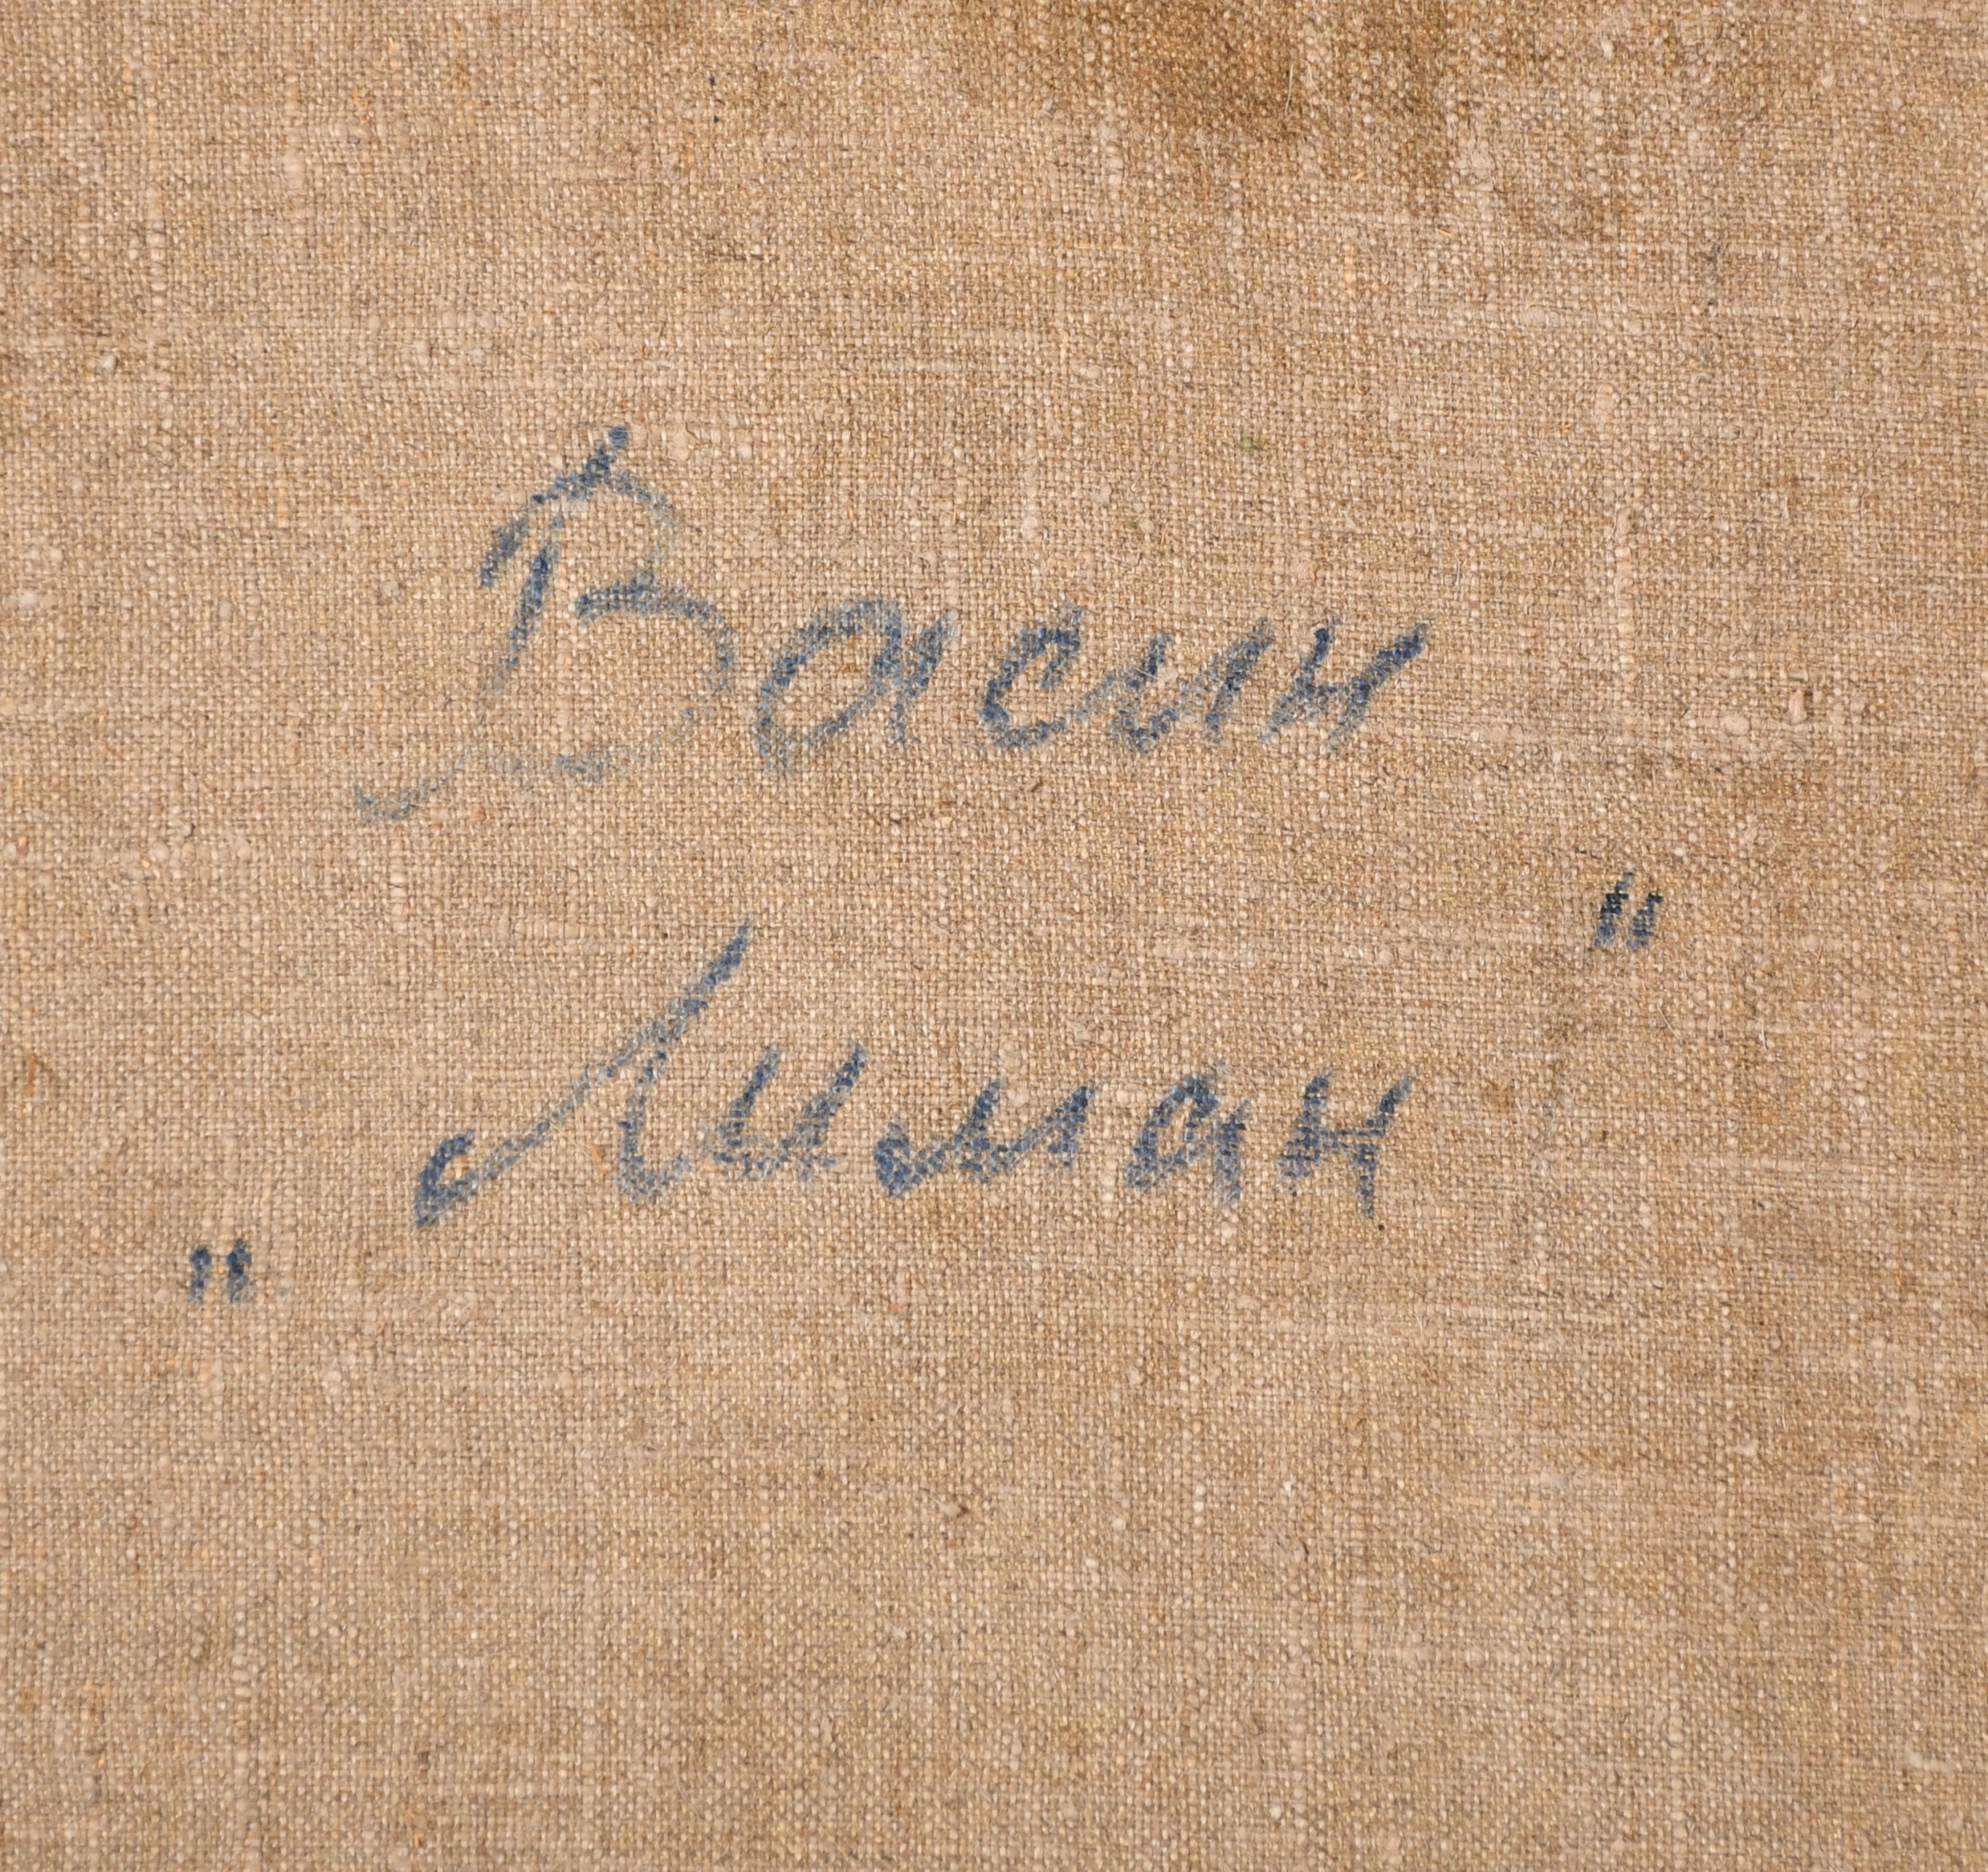 Васин
„Лиман"